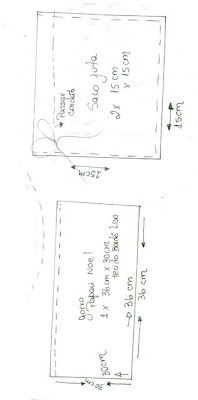 Passar
cordão
Saco juta
2x 15cm
x 15cm
15cm
15cm
Gorro
Papai Noel
1 x 36cm x 30cm
tecido Bordô Liso
36 cm
36 cm
30cm
30cm